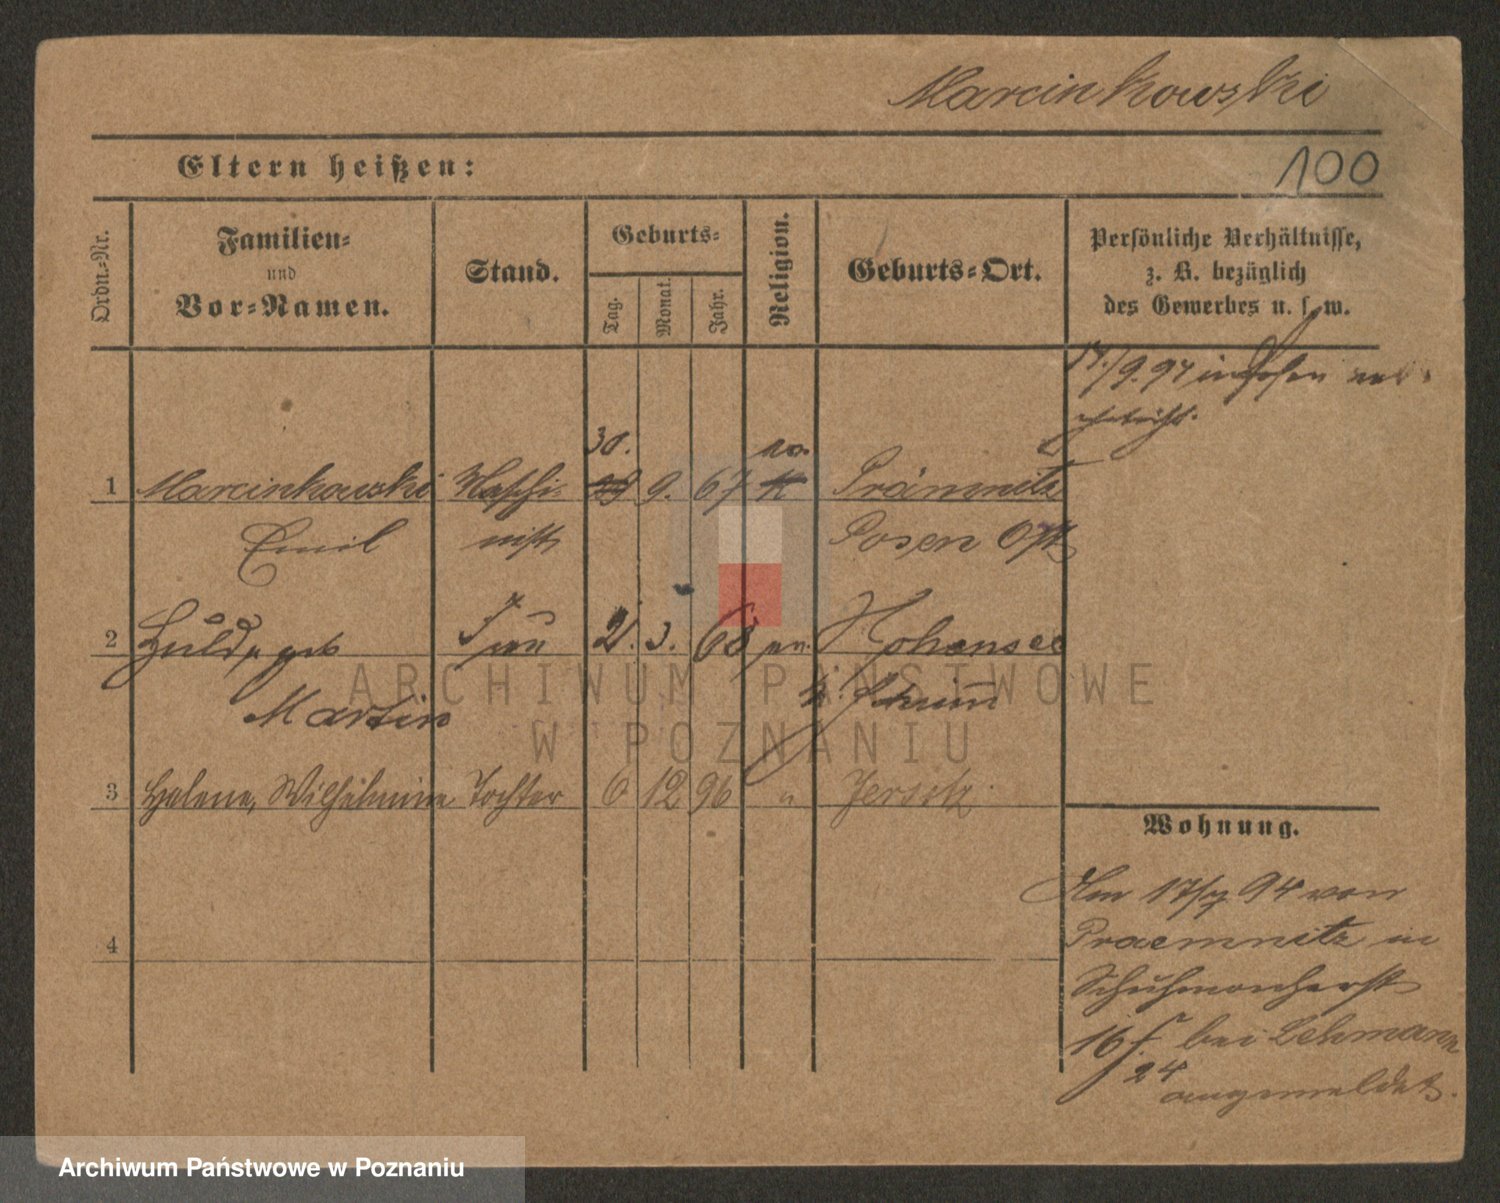 Marcinkowski
100
Eltern heißen:
Ordn.-Nr.
Familien-
und
Vor-Namen.
Stand.
Geburts-
Tag.
Monat.
Jahr.
Religion.
Geburts-Ort.
Persönliche Verhältnisse,
z. B. bezüglich
des Gewerbes u. s. w.
14./9. 94 in Posen
30. ev.
1 Marcinkowski Maschi- 29 9. 67 K Prämnitz
Emil nist Posen Ost
2 Huld, geb Frau 21. 3. 68 ev. Hohensee
Martin K. Schrimm
3 Helene, Wilhelmine Tochter 6 12 96 " Jersitz
4
Wohnung.
Am 17/7 94 von
Praemnitz in
16 bei Lehmann
24 angemeldet.
ARCHIWUM PAŃSTWOWE
W POZNANIU
Archiwum Państwowe w Poznaniu